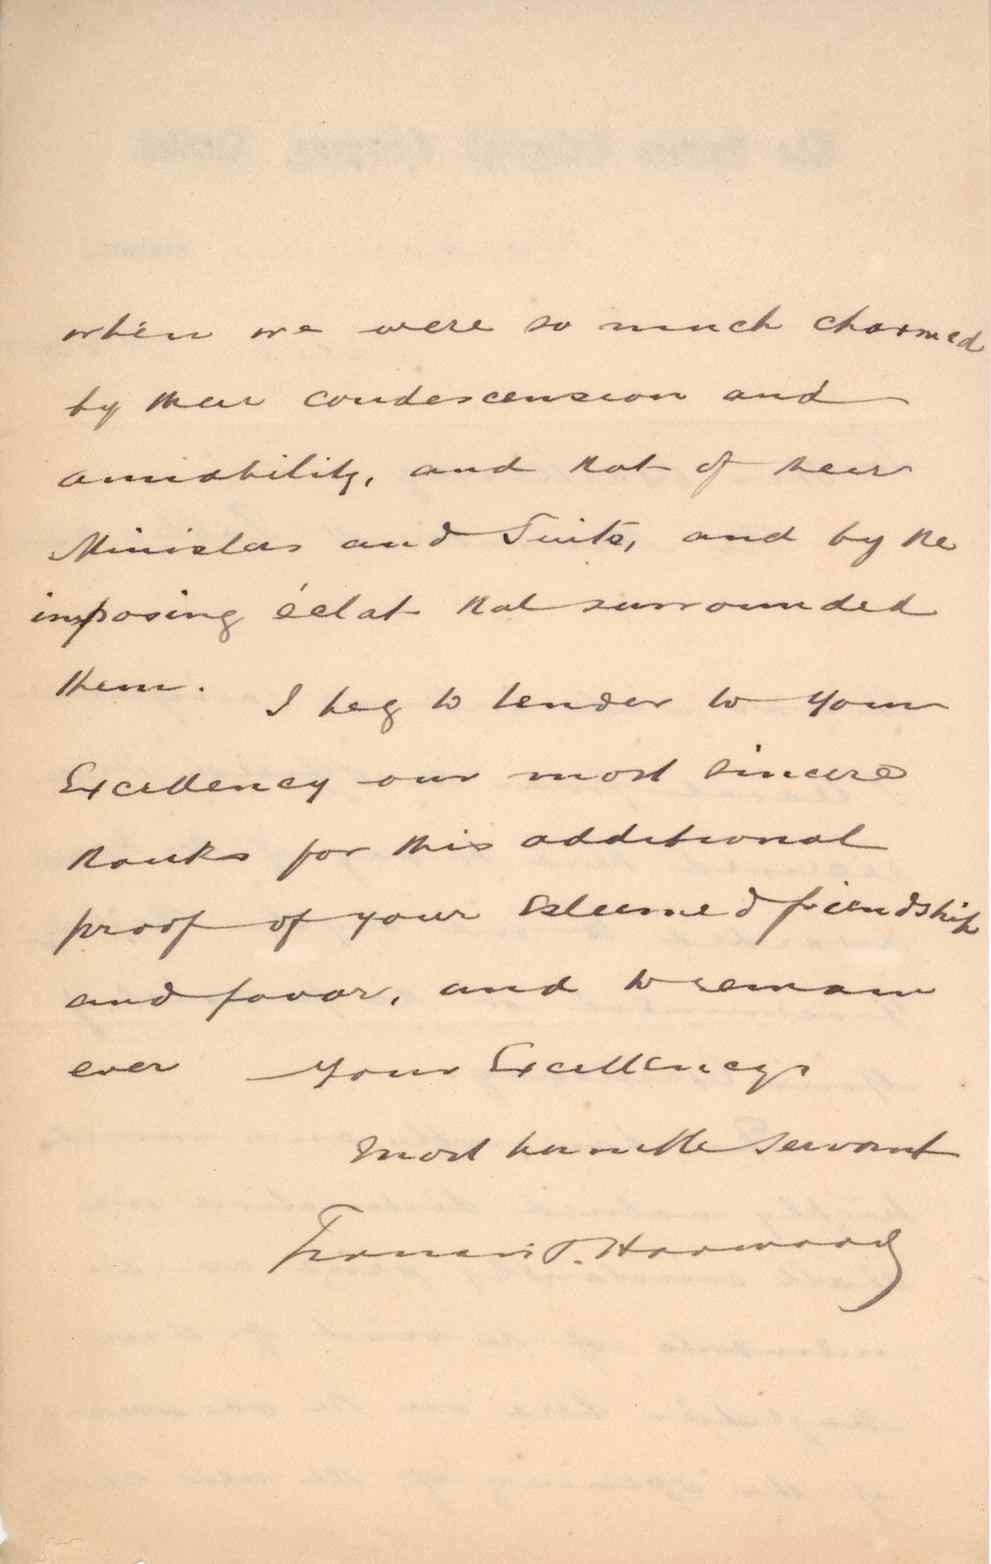 when we were so much charmed
by their condescension and
amiability, and that of their
Ministers and Suite, and by the
imposing éclat that surrounded
them. I beg to tender to Your
Excellency our most sincere
thanks for this additional
proof of your esteemed friendship
and favor, and to remain
ever Your Excellencys
most humble servant